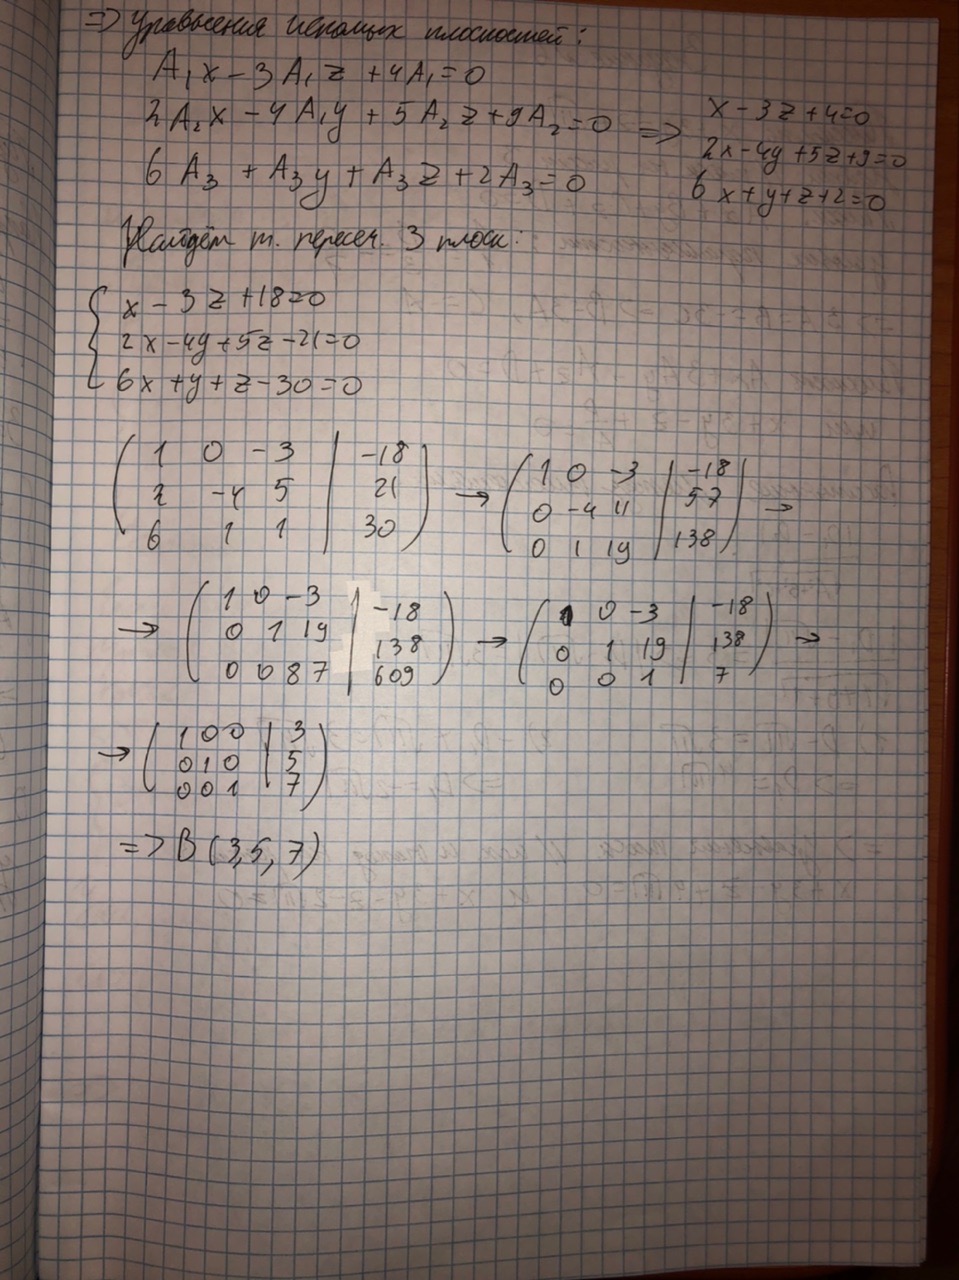 => уравнения искомых плоскостей:
A₁x - 3A₁z + 4A₁ = 0
2A₂x - 4A₁y + 5A₂z + 9A₂ = 0 => x - 3z + 4 = 0
2x - 4y + 5z + 9 = 0
6A₃ + A₃y + A₃z + 2A₃ = 0
6x + y + z + 2 = 0
Найдём т. пересеч. 3 плоск:
{ x - 3z + 18 = 0
2x - 4y + 5z - 21 = 0
6x + y + z - 30 = 0
( 1 0 -3 | -18
2 -4 5 | 21
6 1 1 | 30 ) →
( 1 0 -3 | -18
0 -4 11 | 57
0 1 19 | 138 ) →
→ ( 1 0 -3 | -18
0 1 19 | 138
0 0 87 | 609 ) →
( 1 0 -3 | -18
0 1 19 | 138
0 0 1 | 7 ) →
→ ( 1 0 0 | 3
0 1 0 | 5
0 0 1 | 7 )
=> B (3, 5, 7)